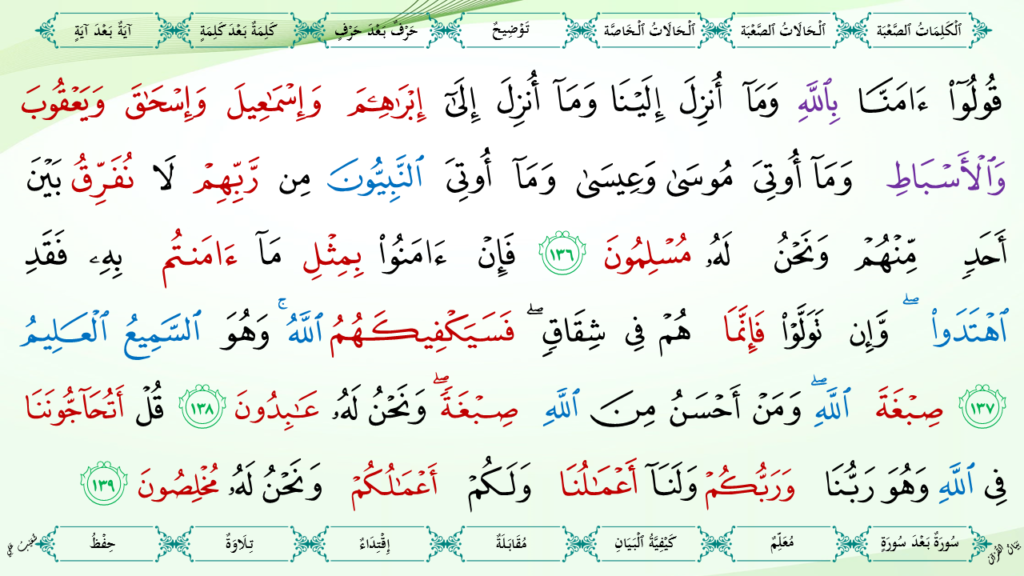 ٱلْكَلِمَاتُ ٱلصَّعْبَة ٱلْحَالَاتُ ٱلصَّعْبَة ٱلْحَالَاتُ ٱلْخَاصَّة تَوْضِيحٌ حَرْفٌ بَعْدَ حَرْفٍ كَلِمَةٌ بَعْدَ كَلِمَةٍ آيَةٌ بَعْدَ آيَةٍ
قُولُوٓا۟ ءَامَنَّا بِٱللَّهِ وَمَآ أُنزِلَ إِلَيْنَا وَمَآ أُنزِلَ إِلَىٰٓ إِبْرَٰهِـۧمَ وَإِسْمَـٰعِيلَ وَإِسْحَـٰقَ وَيَعْقُوبَ
وَٱلْأَسْبَاطِ وَمَآ أُوتِىَ مُوسَىٰ وَعِيسَىٰ وَمَآ أُوتِىَ ٱلنَّبِيُّونَ مِن رَّبِّهِمْ لَا نُفَرِّقُ بَيْنَ
أَحَدٍ مِّنْهُمْ وَنَحْنُ لَهُۥ مُسْلِمُونَ ١٣٦ فَإِنْ ءَامَنُوا۟ بِمِثْلِ مَآ ءَامَنتُم بِهِۦ فَقَدِ
ٱهْتَدَوا۟ ۖ وَّإِن تَوَلَّوْا۟ فَإِنَّمَا هُمْ فِى شِقَاقٍ ۖ فَسَيَكْفِيكَهُمُ ٱللَّهُ ۚ وَهُوَ ٱلسَّمِيعُ ٱلْعَلِيمُ
١٣٧ صِبْغَةَ ٱللَّهِ ۖ وَمَنْ أَحْسَنُ مِنَ ٱللَّهِ صِبْغَةً ۖ وَنَحْنُ لَهُۥ عَـٰبِدُونَ ١٣٨ قُلْ أَتُحَآجُّونَنَا
فِى ٱللَّهِ وَهُوَ رَبُّنَا وَرَبُّكُمْ وَلَنَآ أَعْمَـٰلُنَا وَلَكُمْ أَعْمَـٰلُكُمْ وَنَحْنُ لَهُۥ مُخْلِصُونَ ١٣٩
بَيَانُ القُرْآن سُورَةٌ بَعْدَ سُورَةٍ مُعَلِّمٌ كَيْفِيَّةُ ٱلْبَيَانِ مُقَابَلَةٌ إِقْتِدَاءٌ تِلَاوَةٌ حِفْظٌ